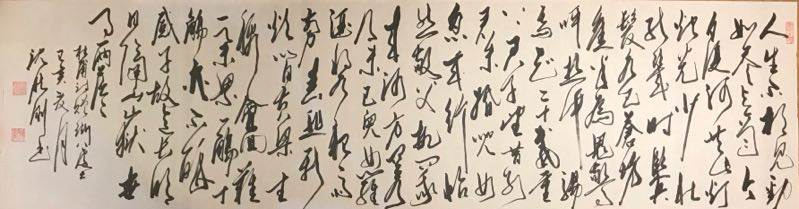 人生不相见动
如参与商今
夕复何夕共此灯
烛光少壮
能几时鬓
发各已苍访
旧半为鬼惊
呼热中肠
焉知二十载重
上君子堂昔别
君未婚儿女
忽成行怡
然敬父执问我
来何方问答
乃未已儿女罗
酒浆夜雨
剪春韭新
炊间黄粱主
称会面难
一举累十觞十
觞亦不醉
感子故意长明
日隔山岳世
事两茫茫
杜甫诗赠卫八处士
己亥夏月
书